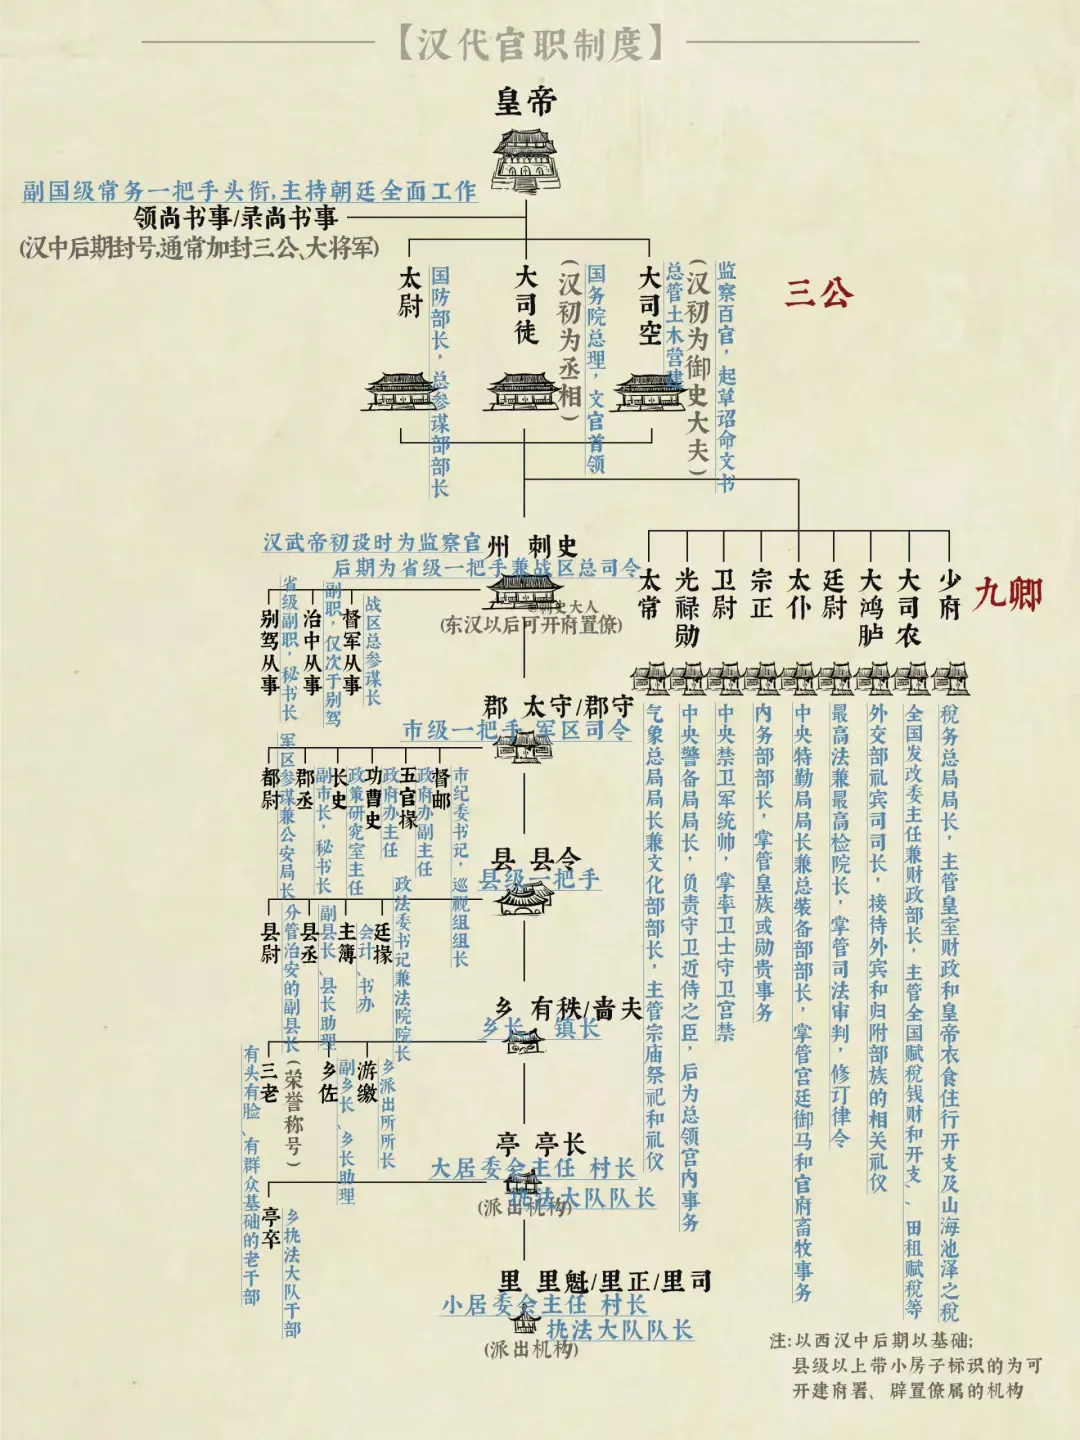 【汉代官职制度】
皇帝
副国级常务一把手头衔,主持朝廷全面工作
领尚书事/录尚书事
(汉中后期封号,通常加封三公、大将军)
太尉
国防部长，总参谋部部长
大司徒
(汉初为丞相)
国务院总理，文官首领
大司空
总管土木营建
(汉初为御史大夫)
监察百官，起草诏命文书
三公
汉武帝初设时为监察官
州 刺史
后期为省级一把手兼战区总司令
@刺史大人
(东汉以后可开府置僚)
别驾从事
省级副职，秘书长
治中从事
副职，仅次于别驾
督军从事
战区总参谋长
太常
光禄勋
卫尉
宗正
太仆
廷尉
大鸿胪
大司农
少府
九卿
气象总局局长兼文化部部长，主管宗庙祭祀和礼仪
中央警备局局长，负责守卫近侍之臣，后为总领宫内事务
中央禁卫军统帅，掌率卫士守卫宫禁
内务部部长，掌管皇族或勋贵事务
中央特勤局局长兼总装备部部长，掌管宫廷御马和官府畜牧事务
最高法兼最高检院长，掌管司法审判，修订律令
外交部礼宾司司长，接待外宾和归附部族的相关礼仪
全国发改委主任兼财政部长，主管全国赋税钱财和开支、、田租赋税等
税务总局局长，主管皇室财政和皇帝衣食住行开支及山海池泽之税
郡 太守/郡守
市级一把手 军区司令
都尉
军区参谋兼公安局长
郡丞
副市长，秘书长
长史
政策研究室主任
功曹史
政府办主任
五官掾
政府办副主任
督邮
市纪委书记，巡视组组长
县 县令
县级一把手
县尉
分管治安的副县长
县丞
副县长、县长助理
主簿
会计、书办
廷掾
政法委书记兼法院院长
乡 有秩/啬夫
乡长 镇长
三老
(荣誉称号)
有头有脸、有群众基础的老干部
乡佐
副乡长、乡长助理
游缴
乡派出所所长
亭 亭长
大居委会主任 村长
执法大队队长
(派出机构)
亭卒
乡执法大队干部
里 里魁/里正/里司
小居委会主任 村长
执法大队队长
(派出机构)
注:以西汉中后期以基础;
县级以上带小房子标识的为可
开建府署、辟置僚属的机构